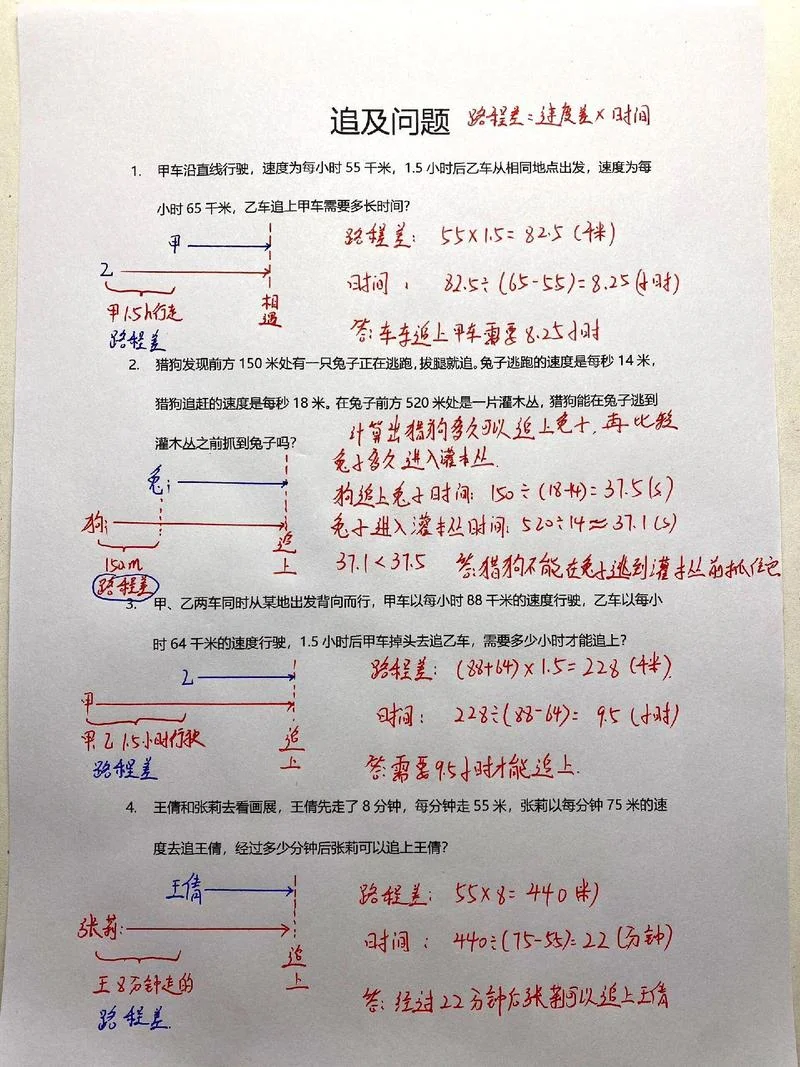 追及问题 路程差=速度差×时间
1. 甲车沿直线行驶，速度为每小时 55 千米，1.5 小时后乙车从相同地点出发，速度为每
小时 65 千米，乙车追上甲车需要多长时间？
甲
乙
甲1.5h行走
路程差
相遇
路程差： 55×1.5=82.5（千米）
时间： 82.5÷(65-55)=8.25（小时）
答：车车追上甲车需要8.25小时
2. 猎狗发现前方 150 米处有一只兔子正在逃跑，拔腿就追。兔子逃跑的速度是每秒 14 米，
猎狗追赶的速度是每秒 18 米。在兔子前方 520 米处是一片灌木丛，猎狗能在兔子逃到
灌木丛之前抓到兔子吗？
计算出猎狗多久可以追上兔子，再比较
兔子多久进入灌木丛.
兔：
狗：
150m
路程差
追上
狗追上兔子时间：150÷(18-14)=37.5(s)
兔子进入灌木丛时间：520÷14≈37.1(s)
37.1<37.5 答：猎狗不能在兔子逃到灌木丛前抓住它
3. 甲、乙两车同时从某地出发背向而行，甲车以每小时 88 千米的速度行驶，乙车以每小
时 64 千米的速度行驶，1.5 小时后甲车掉头去追乙车，需要多少小时才能追上？
乙
甲
甲、乙1.5小时行驶
路程差
追上
路程差： (88+64)×1.5=228（千米）
时间： 228÷(88-64)= 9.5（小时）
答：需要9.5小时才能追上.
4. 王倩和张莉去看画展，王倩先走了 8 分钟，每分钟走 55 米，张莉以每分钟 75 米的速
度去追王倩，经过多少分钟后张莉可以追上王倩？
王倩
张莉：
王8分钟走的
路程差.
追上
路程差： 55×8=440（米）
时间： 440÷(75-55)=22（分钟）
答：经过22分钟后张莉可以追上王倩